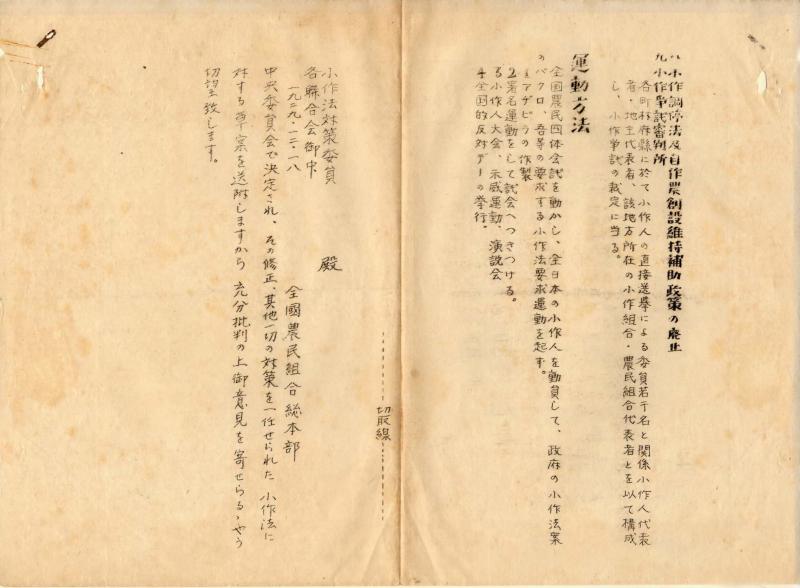 八小作調停法及自作農創設維持補助政策の廃止
九小作争議審判所
各町村府縣に於て小作人の直接選挙による委員若干名と関係小作人代表
者、地主代表者、該地方所在の小作組合・農民組合代表者とを以て構成
し、小作争議の裁定に当る。
運動方法
全国農民団体会議を動かし、全日本の小作人を動員して、政府の小作法案
のバクロ、吾等の要求する小作法要求運動を起す。
1アヂビラの作製
2署名運動をして議会へつきつける。
3小作人大会、示威運動、演説会
4全国的反対デーの挙行。
切取線
小作法対策委員 殿
各聯合会御中
一九二九・一二・一八
全國農民組合総本部
中央委員会で決定され、その修正、其他一切の対策を一任せられた小作法に
対する草案を送附しますから 充分批判の上御意見を寄せらるゝやう
切望致します。